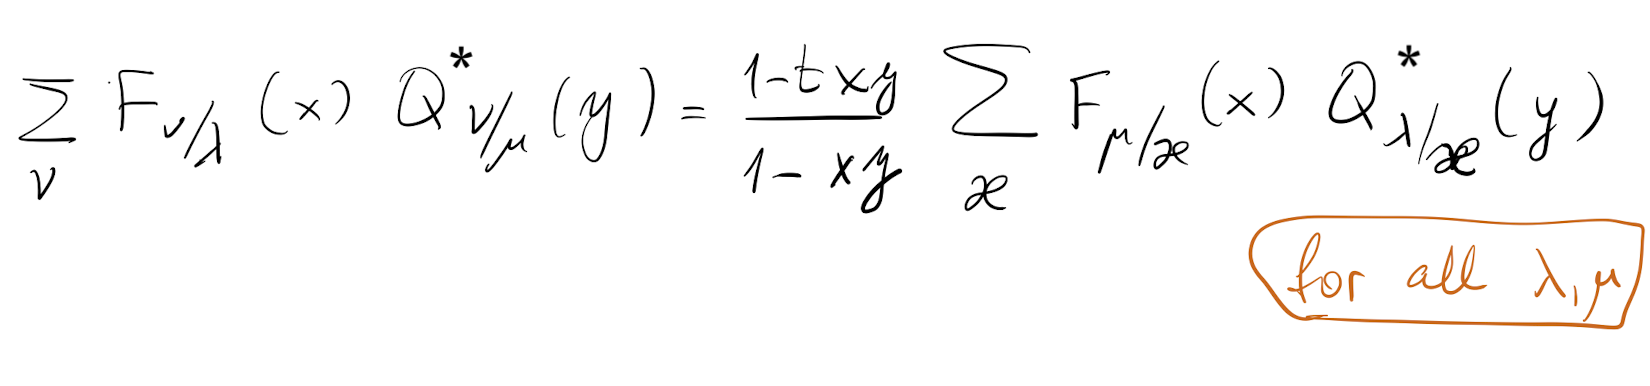 ∑_ν F_{ν/λ}(x) Q*_{ν/μ}(y) = \frac{1-txy}{1-xy} ∑_æ F_{μ/æ}(x) Q*_{λ/æ}(y)
for all λ, μ